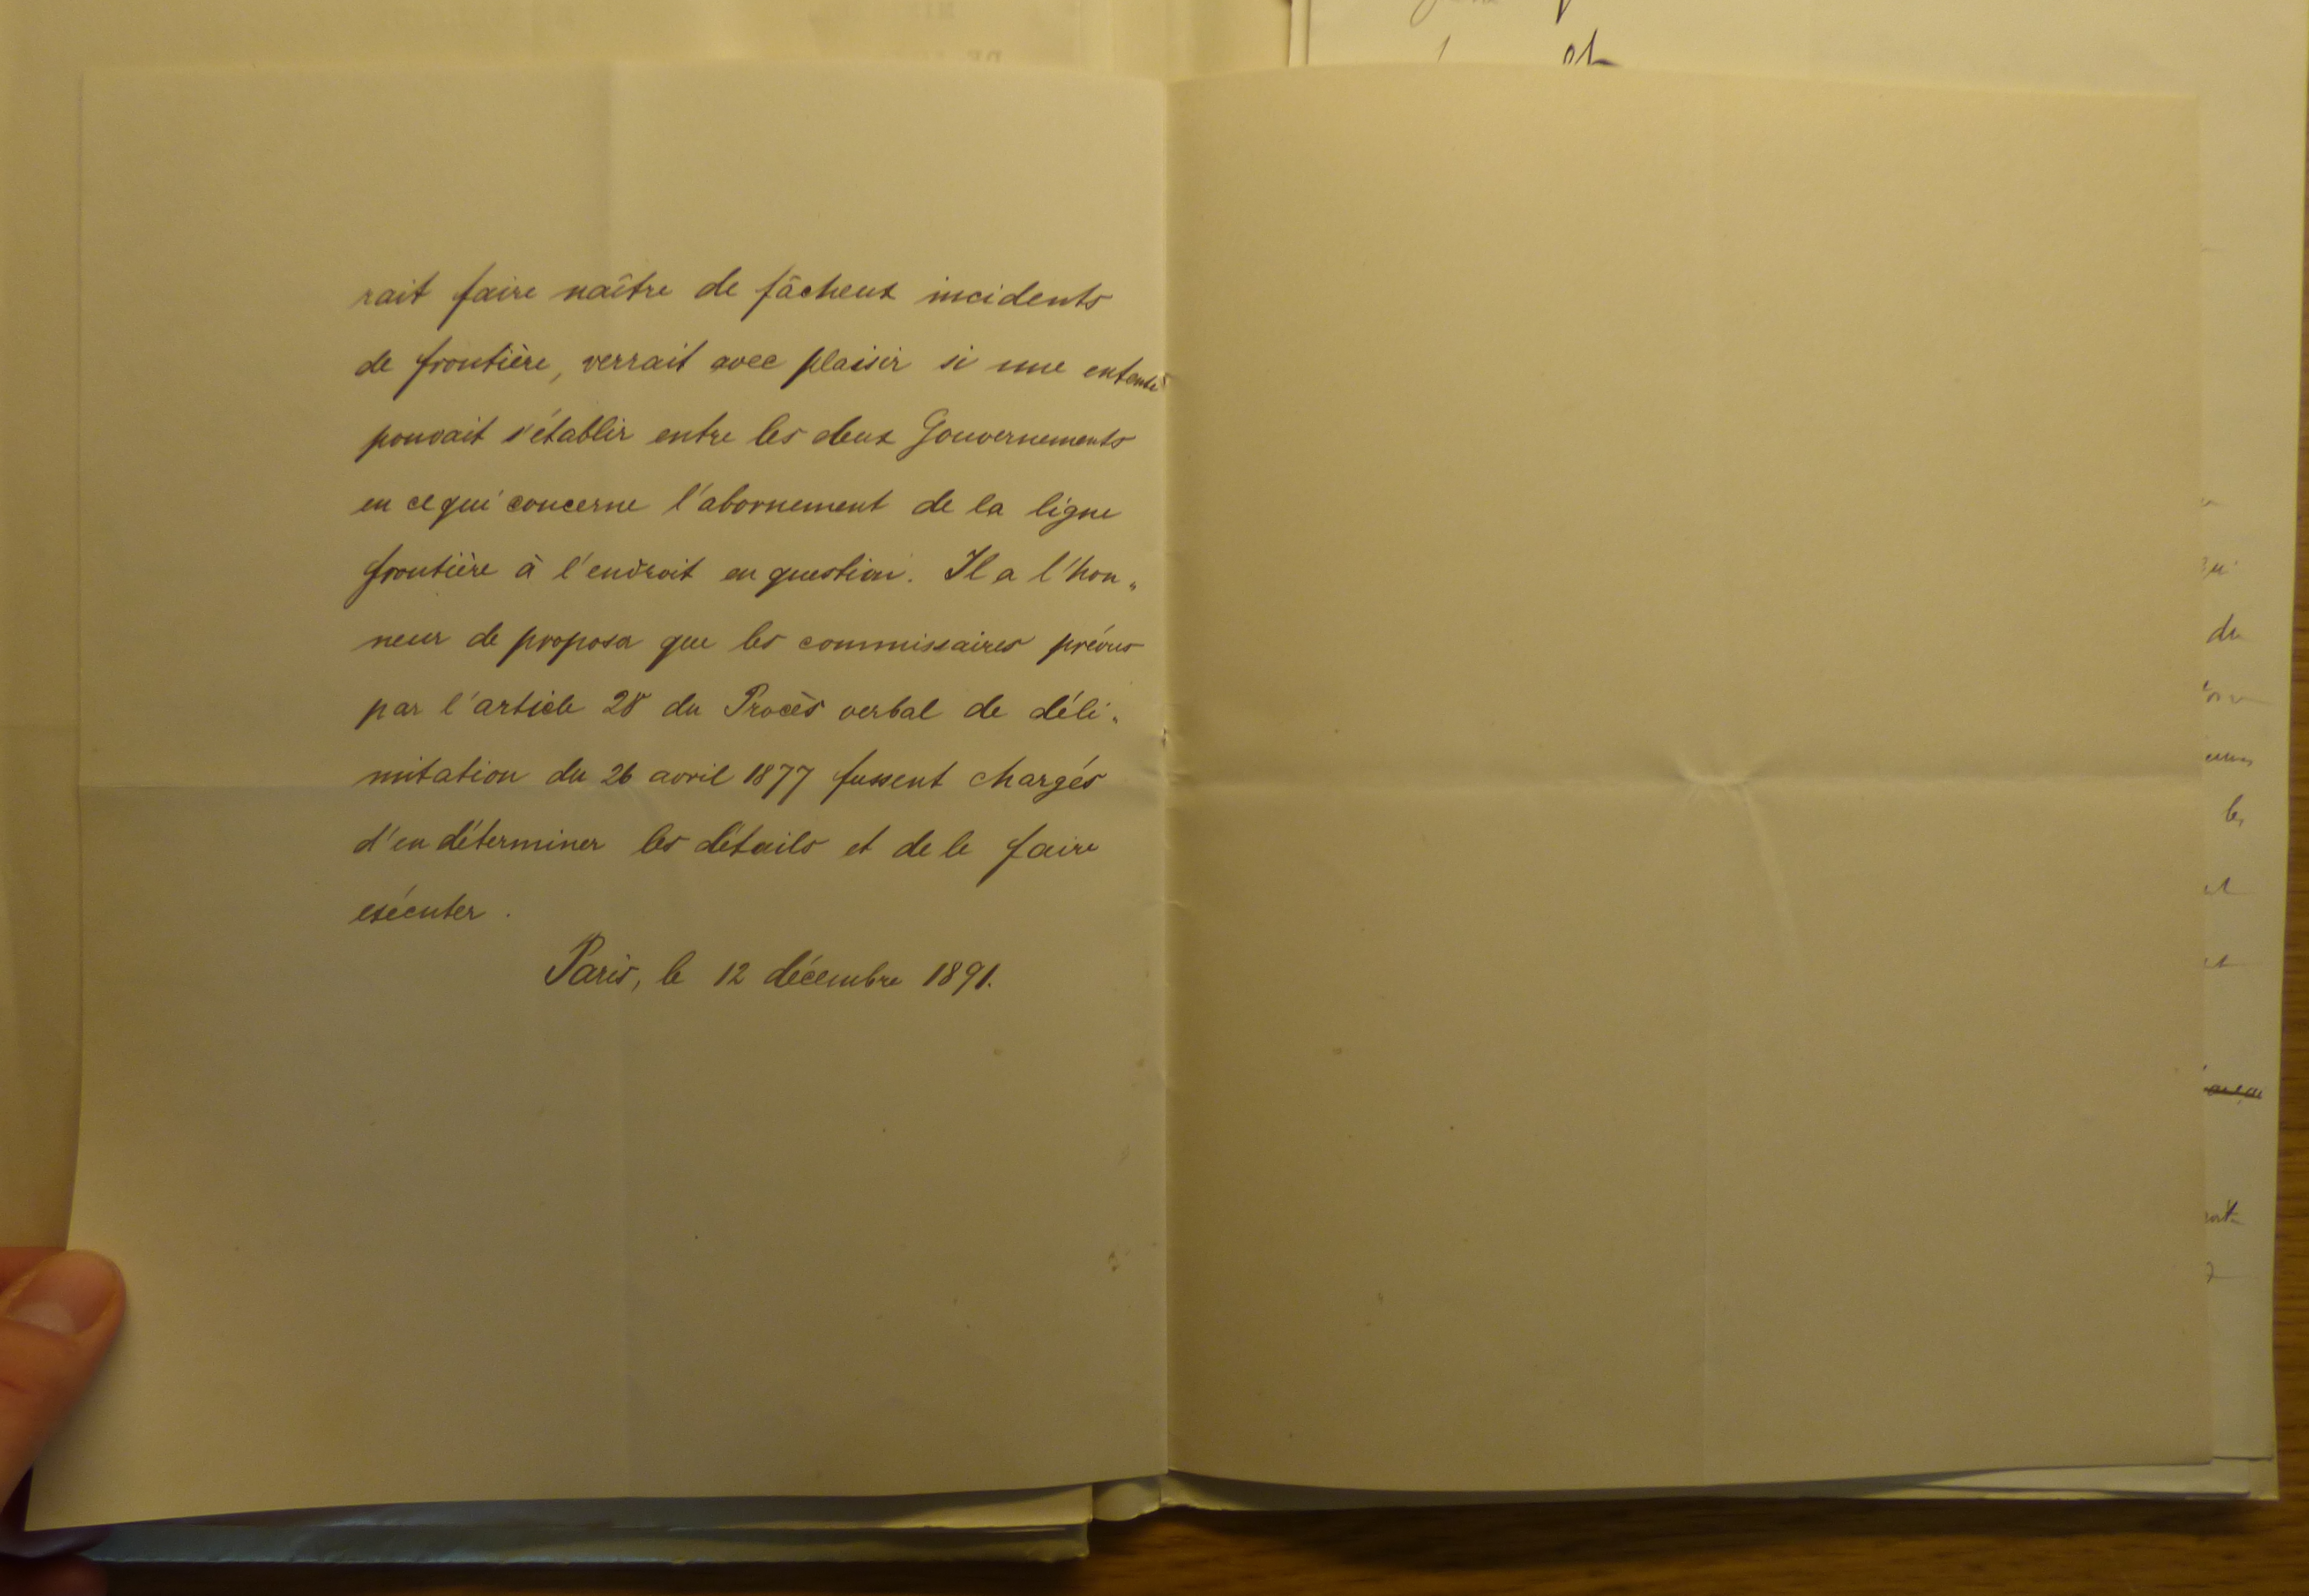 rait faire naître de fâcheux incidents
de frontière, verrait avec plaisir si une entente
pouvait s'établir entre les deux Gouvernements
en ce qui concerne l'abornement de la ligne
frontière à l'endroit en question. Il a l'hon„
neur de proposer que les commissaires prévus
par l'article 28 du Procès verbal de déli„
mitation du 26 avril 1877 fussent chargés
d'en déterminer les détails et de le faire
exécuter.
Paris, le 12 décembre 1891.
du
les
et
et